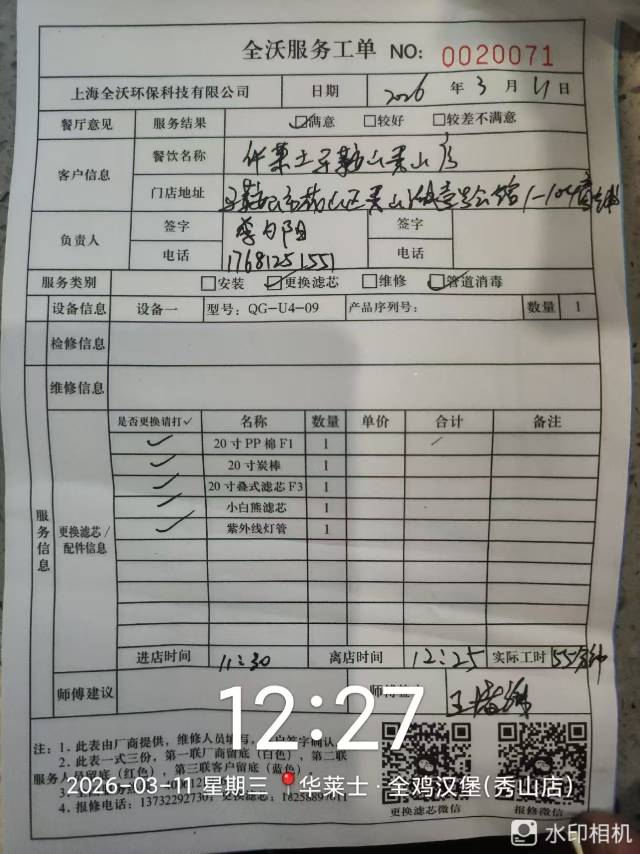 全沃服务工单 NO: 0020071
上海全沃环保科技有限公司 日期 2026 年 3 月 11 日
餐厅意见 服务结果 ☑满意 □较好 □较差不满意
客户信息 餐饮名称 华莱士马鞍山秀山店
门店地址 马鞍山市 山区秀山 1-10
负责人 签字 签字
电话 17681251551 电话
服务类别 □安装 ☑更换滤芯 □维修 ☑管道消毒
设备信息 设备一 型号: QG-U4-09 产品序列号: 数量 1
检修信息
维修信息
服务信息
更换滤芯/配件信息
是否更换请打✓ 名称 数量 单价 合计 备注
✓ 20寸PP棉F1 1
✓ 20寸炭棒 1
✓ 20寸叠式滤芯F3 1
✓ 小白熊滤芯 1
✓ 紫外线灯管 1
进店时间 11:30 离店时间 12:25 实际工时 55分钟
师傅建议 师傅
12:27
注: 1. 此表由厂商提供, 维修人员填写, 客户签字确认,
2. 此表一式三份, 第一联厂商留底(白色), 第二联
服务人员留底(红色), 第三联客户留底(蓝色)
2026-03-11 星期三 华莱士·全鸡汉堡(秀山店)
4. 报修电话: 13732292730, 更换滤芯: 18258897011
更换滤芯微信 报修微信
水印相机